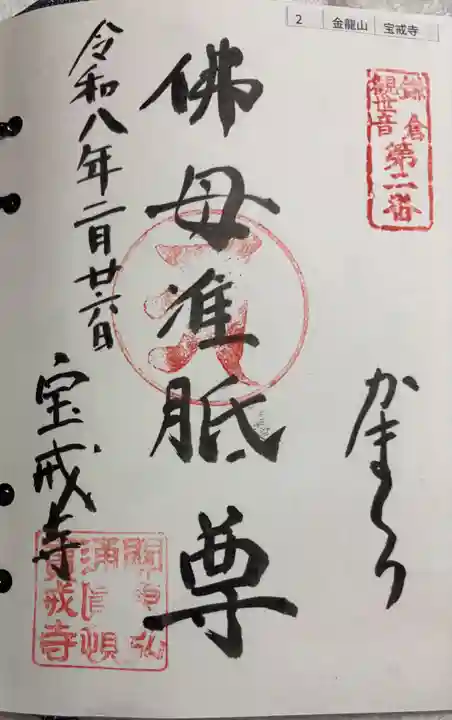 2 金龍山 宝戒寺
鎌倉
観世音
第二番
かまくら
佛母准胝尊
令和八年二月廿六日
宝戒寺